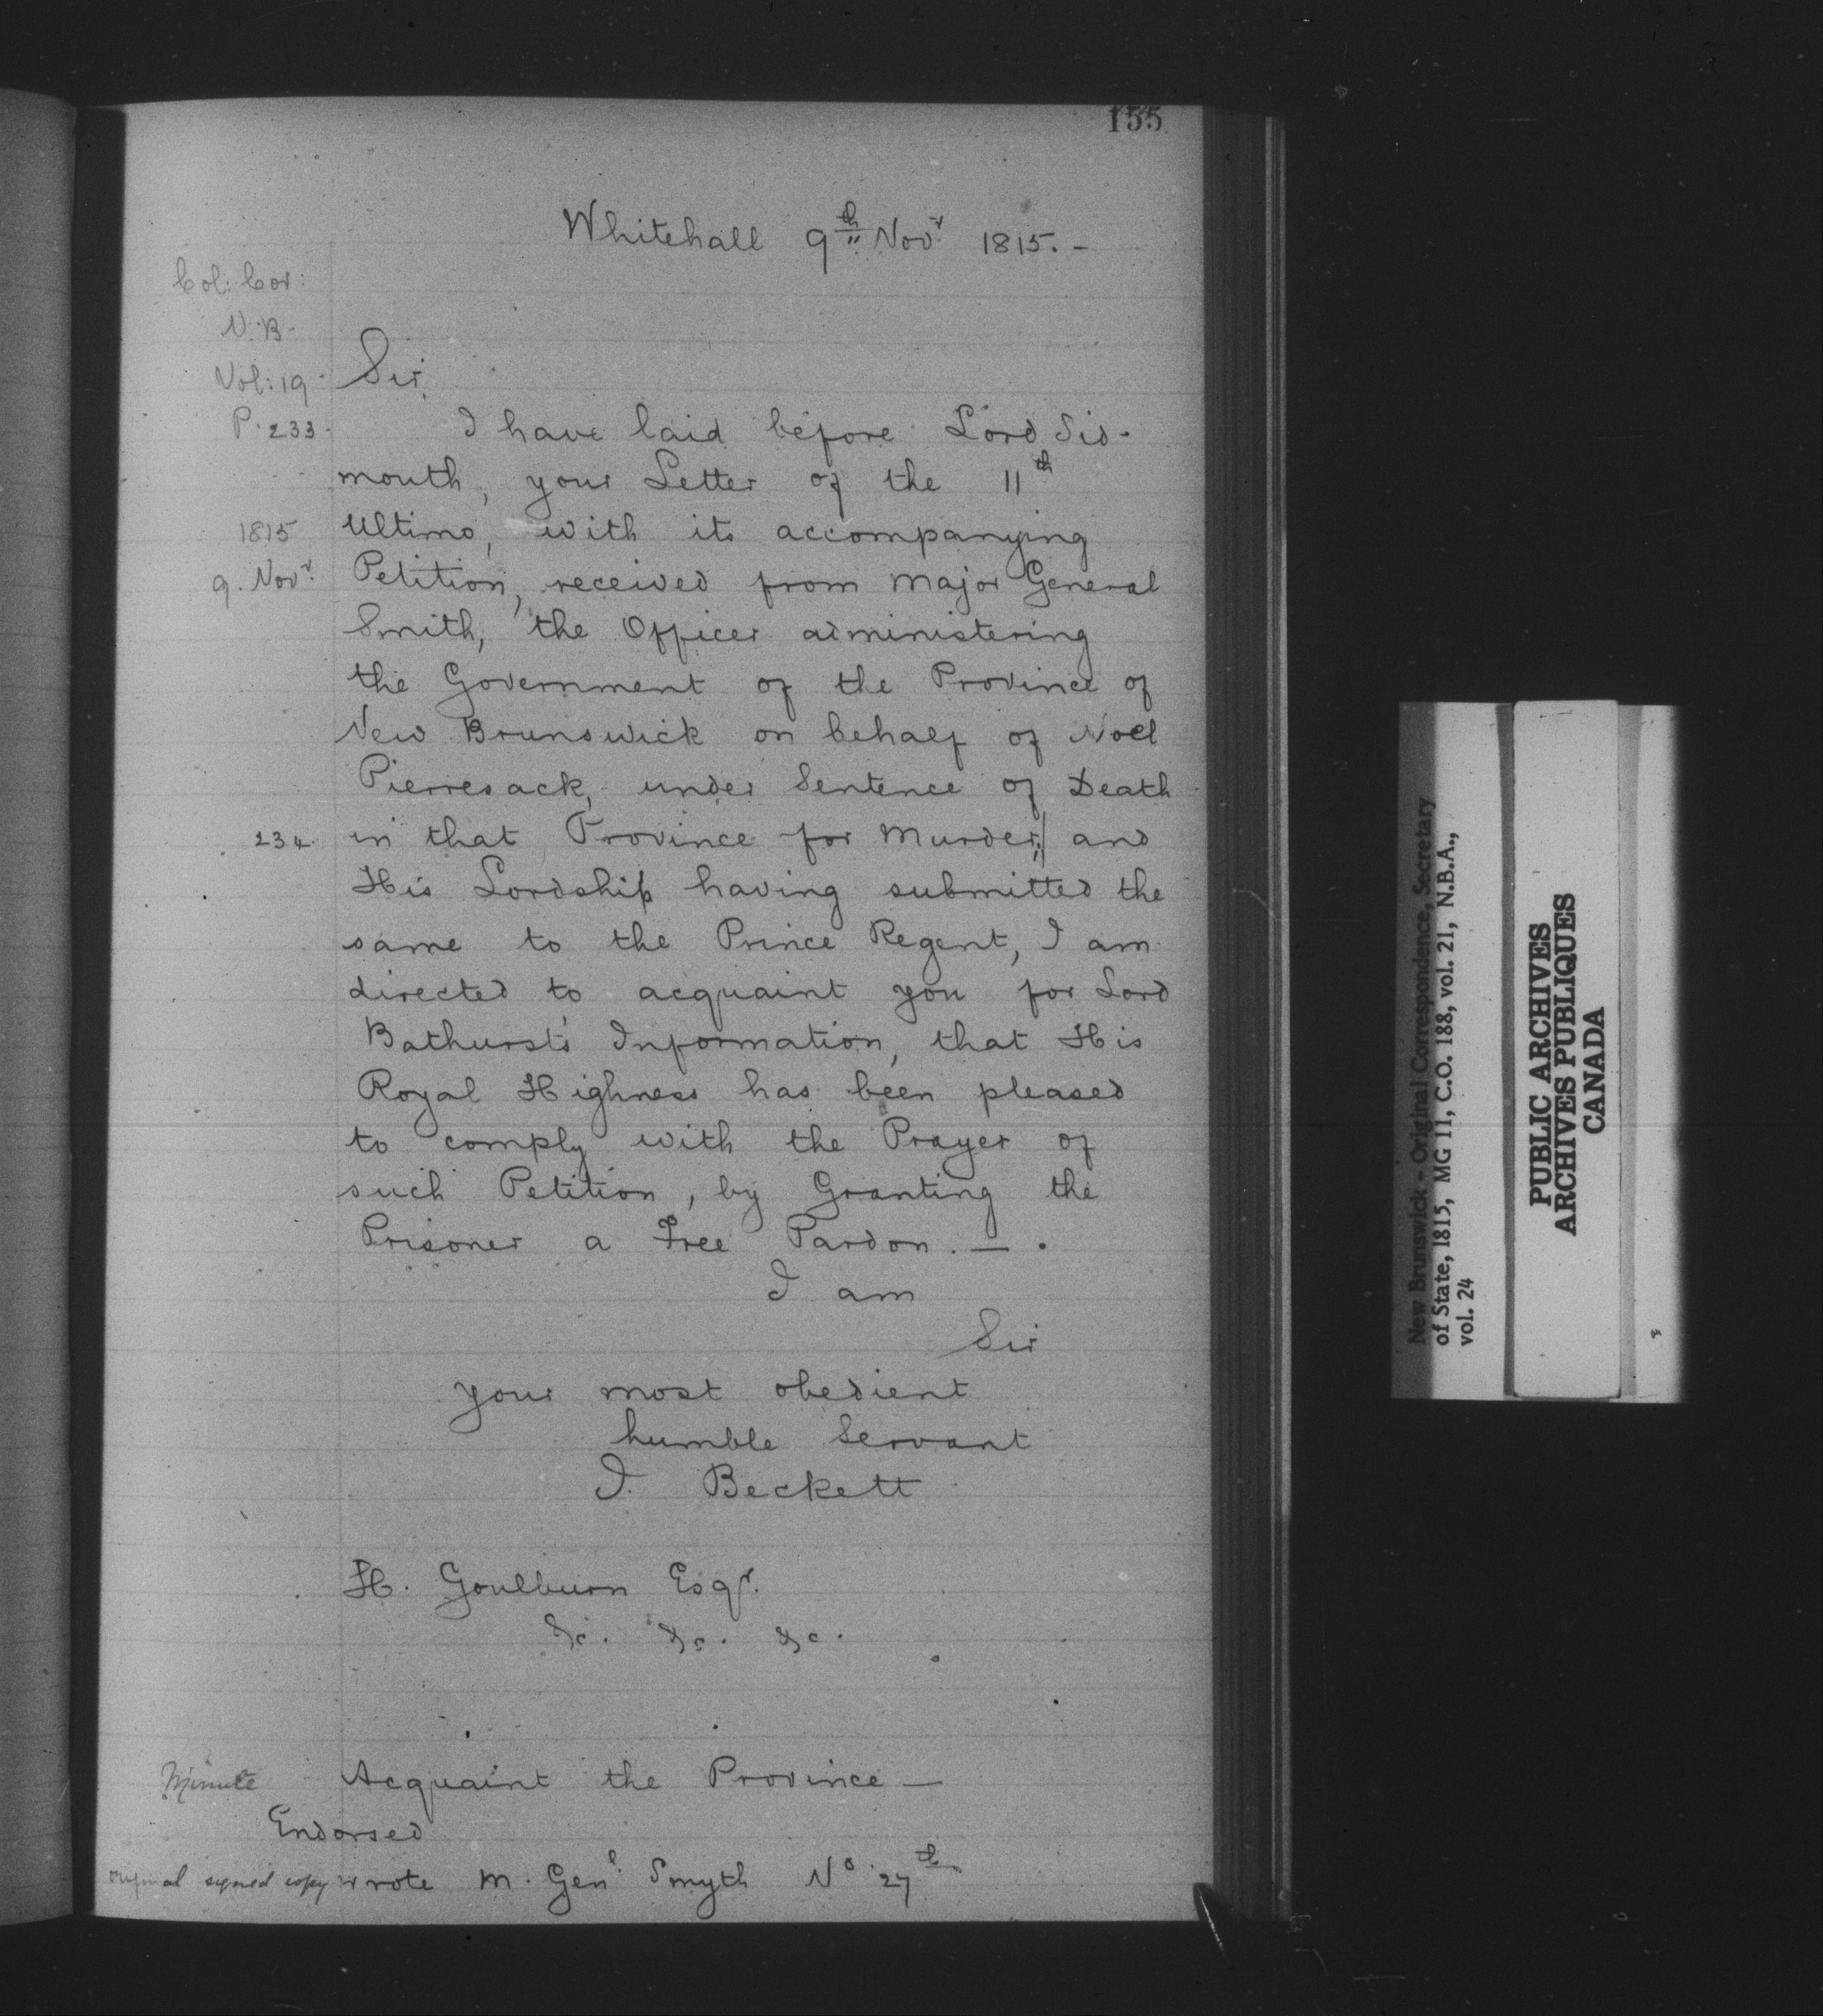 155
Whitehall 9th Novr 1815. -
Col: Cor:
N.B.
Vol: 19.
P. 233.
Sir,
I have laid before Lord Sid-
mouth, your Letter of the 11th
1815
Ultimo, with its accompanying
9. Novr.
Petition, received from Major General
Smith, the Officer administering
the Government of the Province of
New Brunswick on behalf of Noel
Pierresack, under Sentence of Death
234.
in that Province for Murder;/ and
His Lordship having submitted the
same to the Prince Regent, I am
directed to acquaint you for Lord
Bathurst's Information, that His
Royal Highness has been pleased
to comply with the Prayer of
such Petition, by Granting the
Prisoner a Free Pardon. — .
I am
Sir
your most obedient
humble Servant
J. Beckett
H. Goulburn Esqr.
&c. &c. &c.
Minute Acquaint the Province —
Endorsed
original signed copy wrote M. Genl. Smyth No 27th
New Brunswick - Original Correspondence, Secretary
of State, 1815, MG 11, C.O. 188, vol. 21, N.B.A.,
vol. 24
PUBLIC ARCHIVES
ARCHIVES PUBLIQUES
CANADA